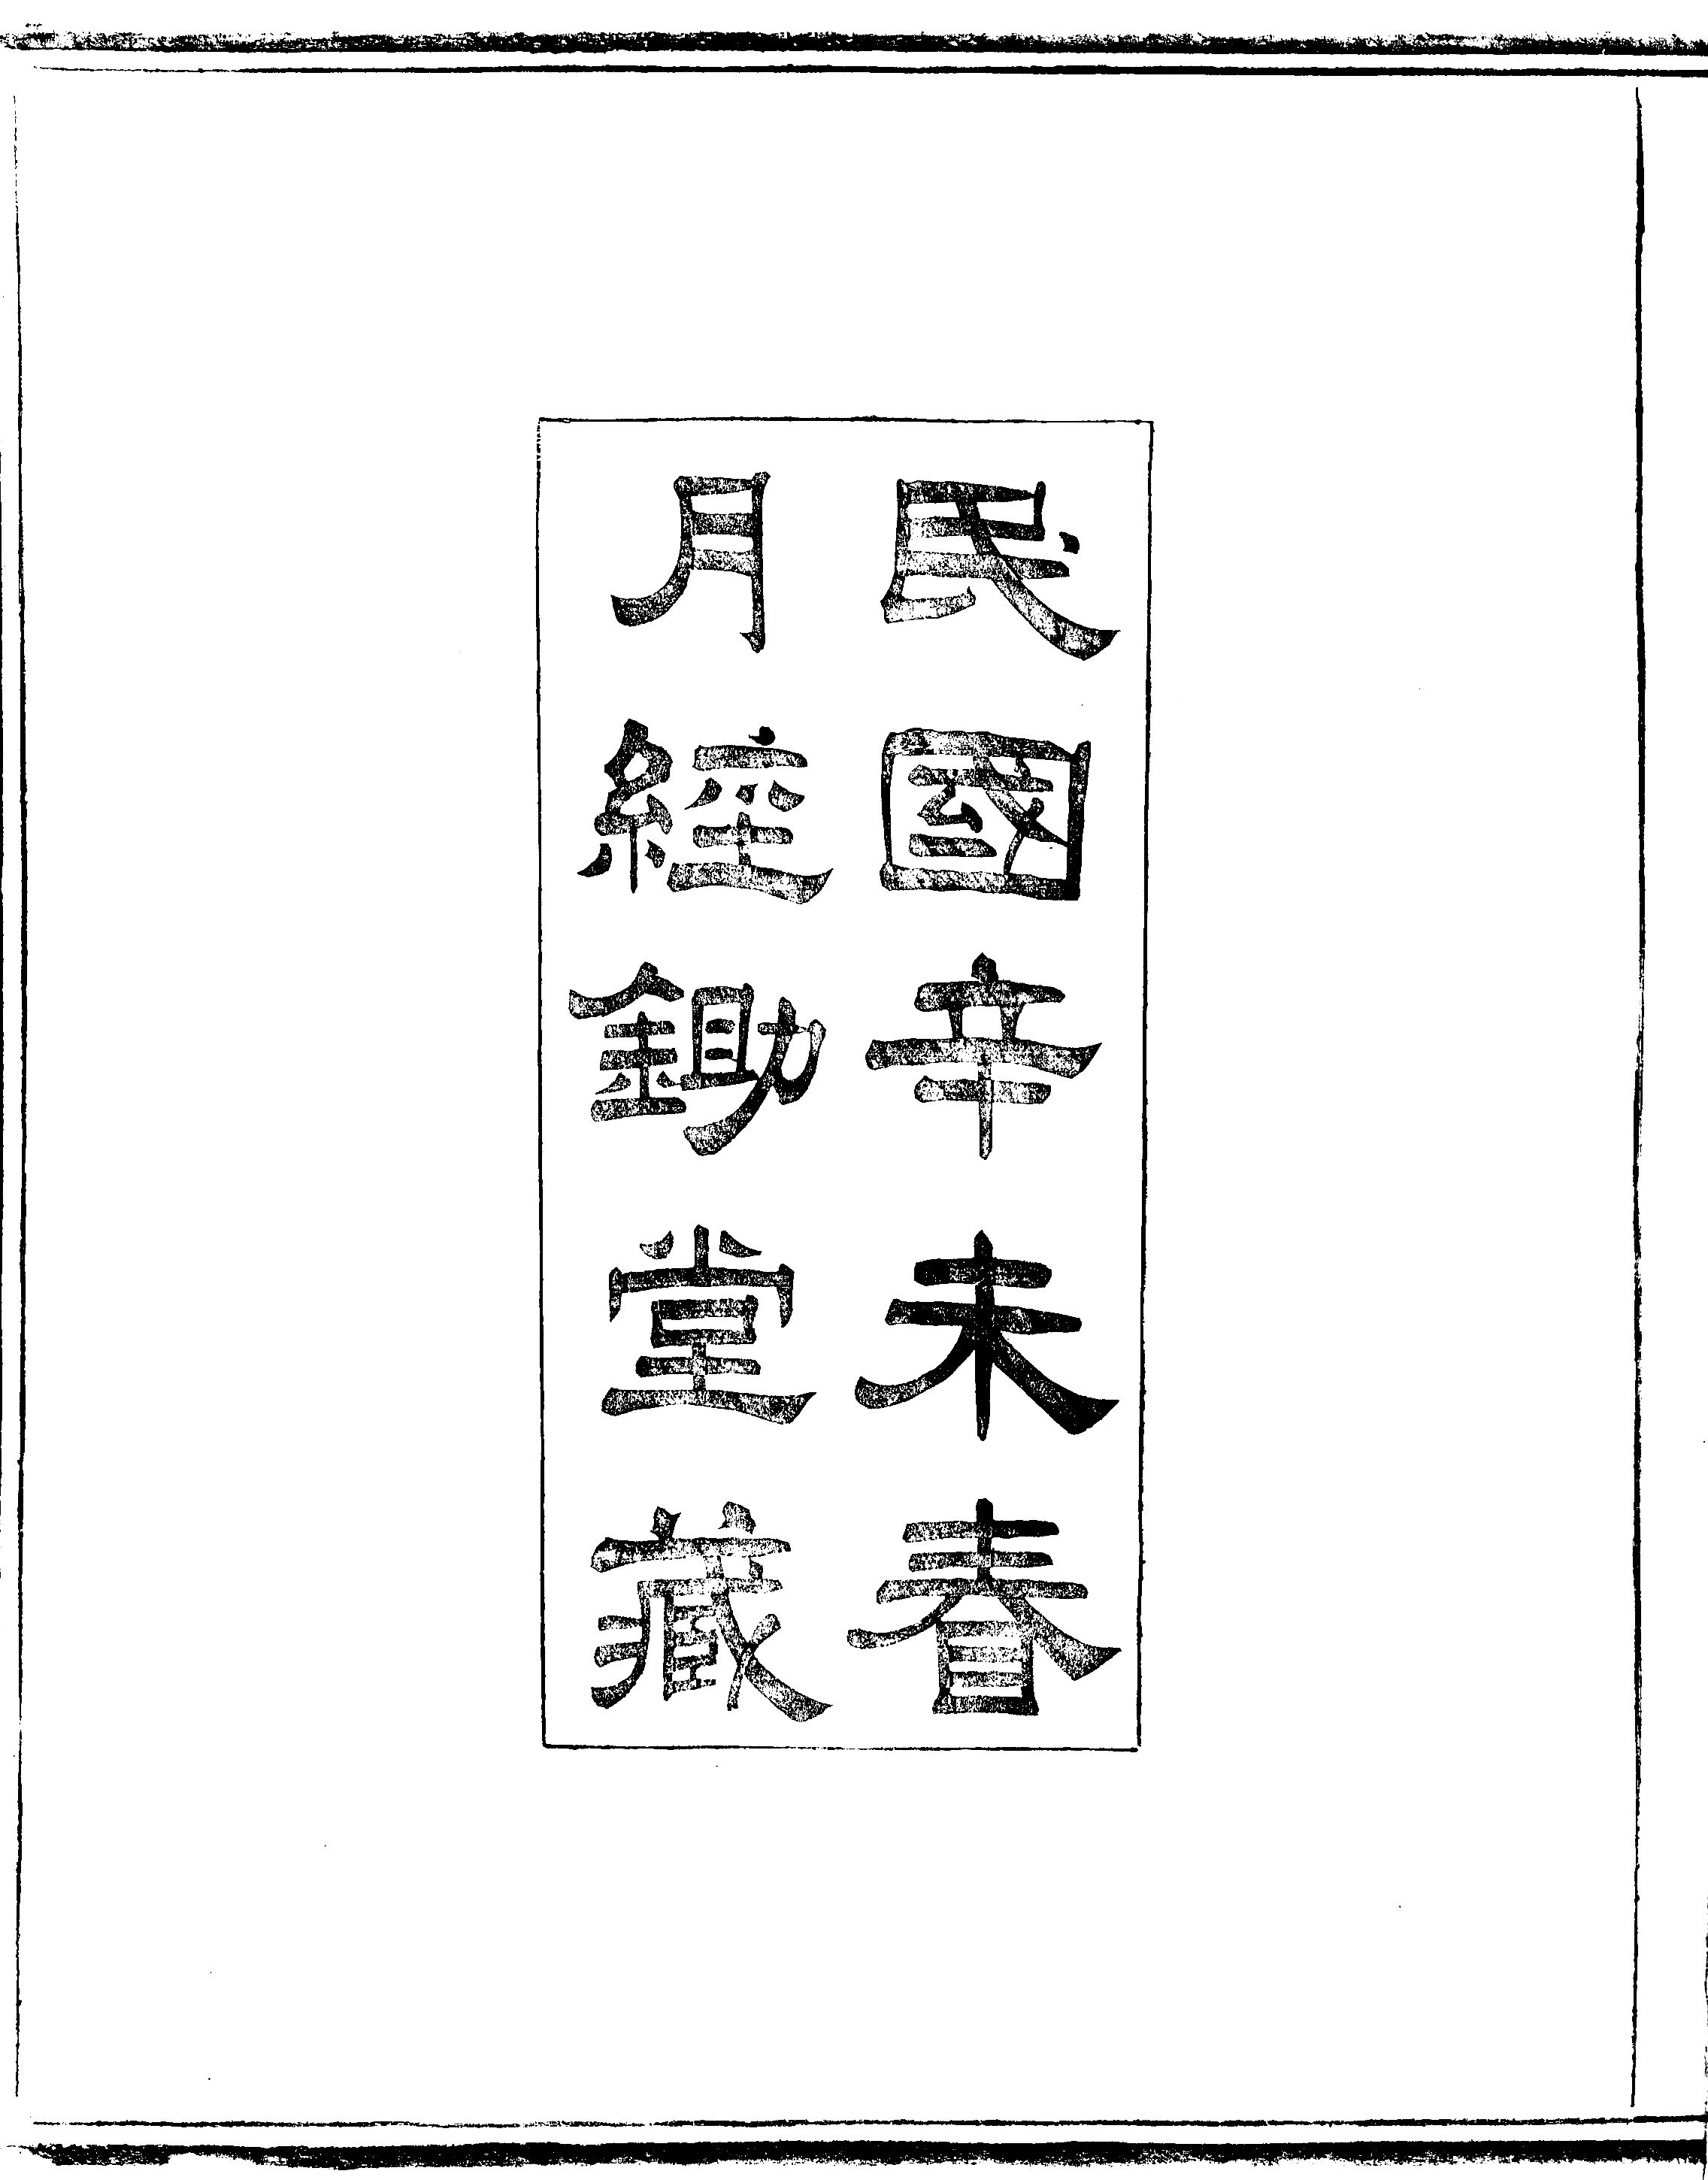 民國辛未春
月經鋤堂藏